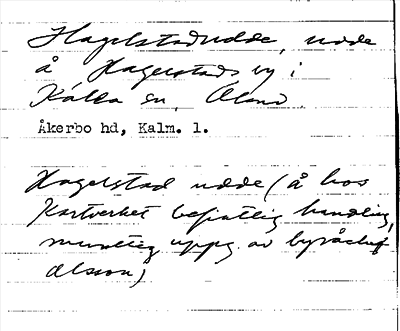 Hagelstadudde, udde
å Hagelstads by i
Källa sn, Öland.
Åkerbo hd, Kalm. l.
Hagelstad udde (å hos
Kartverket befintlig handling,
muntlig uppg. av byråchef
Olsson)